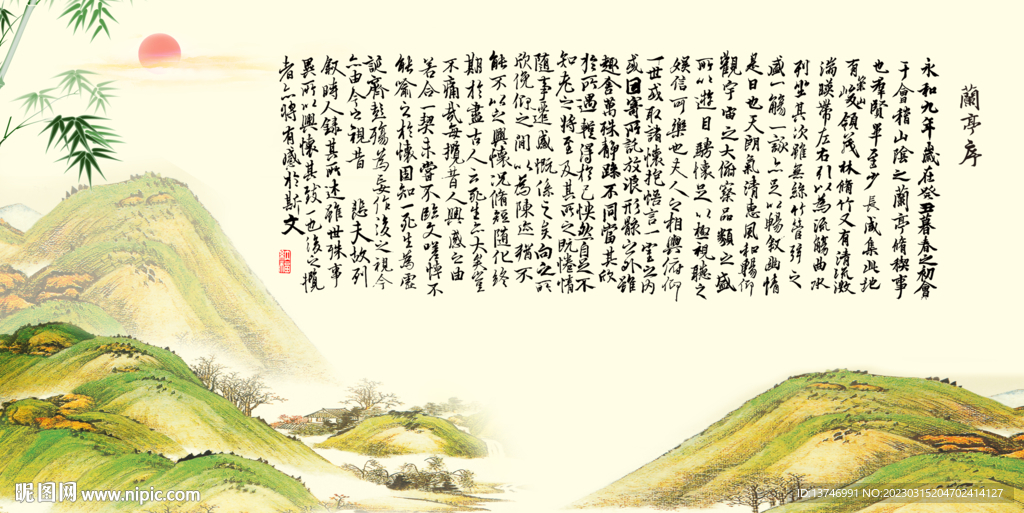 蘭亭序
永和九年歲在癸丑暮春之初會
于會稽山陰之蘭亭脩稧事
也羣賢畢至少長咸集此地
有崇山峻領茂林脩竹又有清流激
湍暎帶左右引以為流觴曲水
列坐其次雖無絲竹管弦之
盛一觴一詠亦足以暢敘幽情
是日也天朗氣清惠風和暢仰
觀宇宙之大俯察品類之盛
所以遊目騁懷足以極視聽之
娛信可樂也夫人之相與俯仰
一世或取諸懷抱悟言一室之內
或因寄所託放浪形骸之外雖
趣舍萬殊靜躁不同當其欣
於所遇輙得於己怏然自足不
知老之將至及其所之既惓情
隨事遷感慨係之矣向之所
欣俛仰之間以為陳迹猶不
能不以之興懷況脩短隨化終
期於盡古人云死生亦大矣豈
不痛哉每攬昔人興感之由
若合一契未嘗不臨文嗟悼不
能喻之於懷固知一死生為虛
誕齊彭殤為妄作後之視今
亦由今之視昔 悲夫故列
敘時人錄其所述雖世殊事
異所以興懷其致一也後之攬
者亦將有感於斯文
昵图网 www.nipic.com
ID:13746991 NO:20230315204702414127